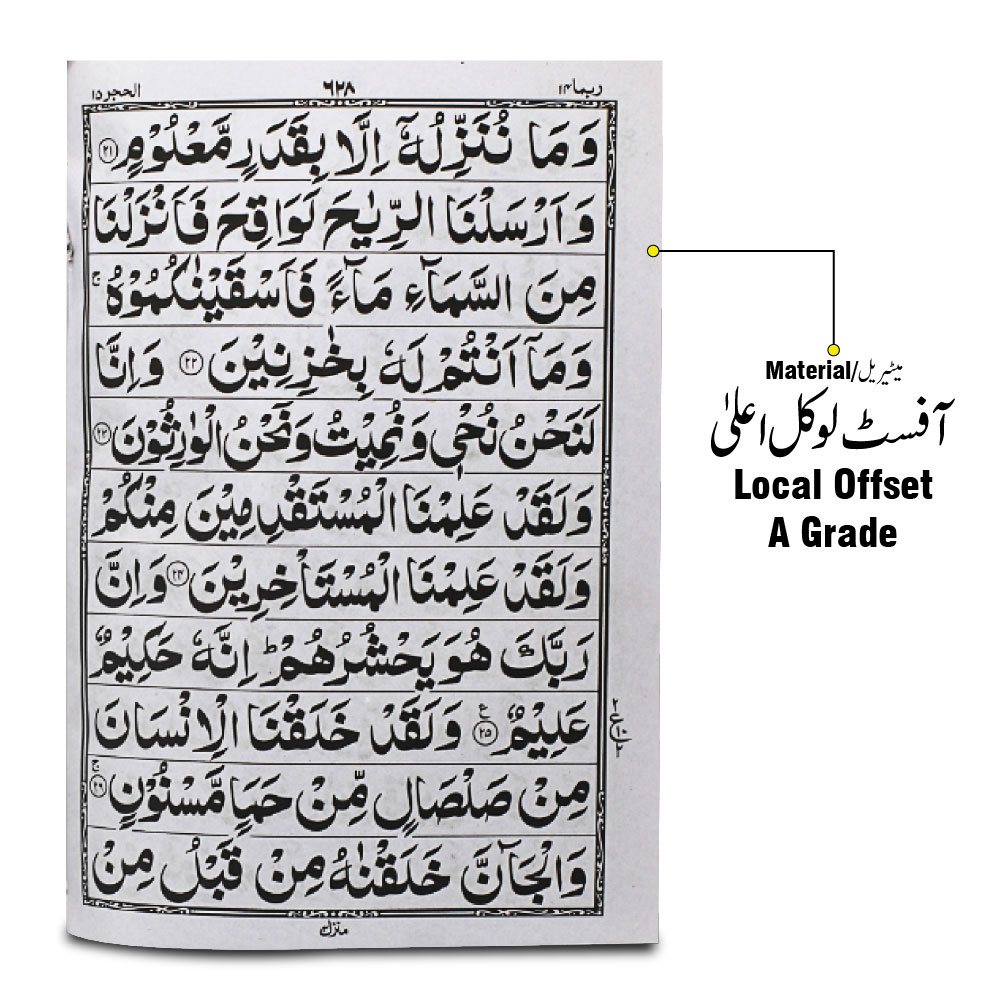 ربما ١٤ ٦٢٨ الحجر ١٥
وَمَا نُنَزِّلُهٗۤ اِلَّا بِقَدَرٍ مَّعْلُوْمٍ ﴿۲۱﴾
وَاَرْسَلْنَا الرِّيٰحَ لَوَاقِحَ فَاَنْزَلْنَا
مِنَ السَّمَآءِ مَآءً فَاَسْقَيْنٰكُمُوْهُ ۚ
وَمَاۤ اَنْتُمْ لَهٗ بِخٰزِنِيْنَ ﴿۲۲﴾ وَاِنَّا
لَنَحْنُ نُحْيٖ وَنُمِيْتُ وَنَحْنُ الْوٰرِثُوْنَ ﴿۲۳﴾
وَلَقَدْ عَلِمْنَا الْمُسْتَقْدِمِيْنَ مِنْكُمْ
وَلَقَدْ عَلِمْنَا الْمُسْتَاْخِرِيْنَ ﴿۲۴﴾ وَاِنَّ
رَبَّكَ هُوَ يَحْشُرُهُمْ ؕ اِنَّهٗ حَكِيْمٌ
عَلِيْمٌ ﴿۲۵﴾ ع وَلَقَدْ خَلَقْنَا الْاِنْسَانَ
مِنْ صَلْصَالٍ مِّنْ حَمَاٍ مَّسْنُوْنٍ ۚ ﴿۲۶﴾
وَالْجَآنَّ خَلَقْنٰهُ مِنْ قَبْلُ مِنْ
Material/میٹیریل
آفسٹ لوکل اعلیٰ
Local Offset
A Grade